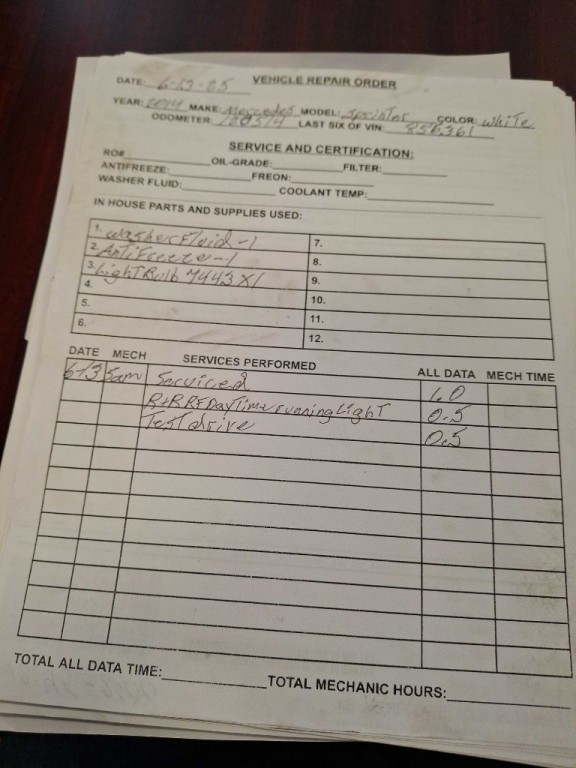 DATE: 6-13-25 VEHICLE REPAIR ORDER
YEAR: 2014 MAKE: Mercedes MODEL: Sprinter COLOR: white
ODOMETER: LAST SIX OF VIN: 856361
SERVICE AND CERTIFICATION:
RO# OIL-GRADE: FILTER:
ANTIFREEZE: FREON:
WASHER FLUID: COOLANT TEMP:
IN HOUSE PARTS AND SUPPLIES USED:
1. washer Fluid -1 7.
2. AntiFreeze -1 8.
3. Light Bulb 7443 X1 9.
4. 10.
5. 11.
6. 12.
DATE MECH SERVICES PERFORMED ALL DATA MECH TIME
6-13 Sam Serviced 1.0
R+R RF DayTime running Light 0.5
Test drive 0.5
TOTAL ALL DATA TIME: TOTAL MECHANIC HOURS: